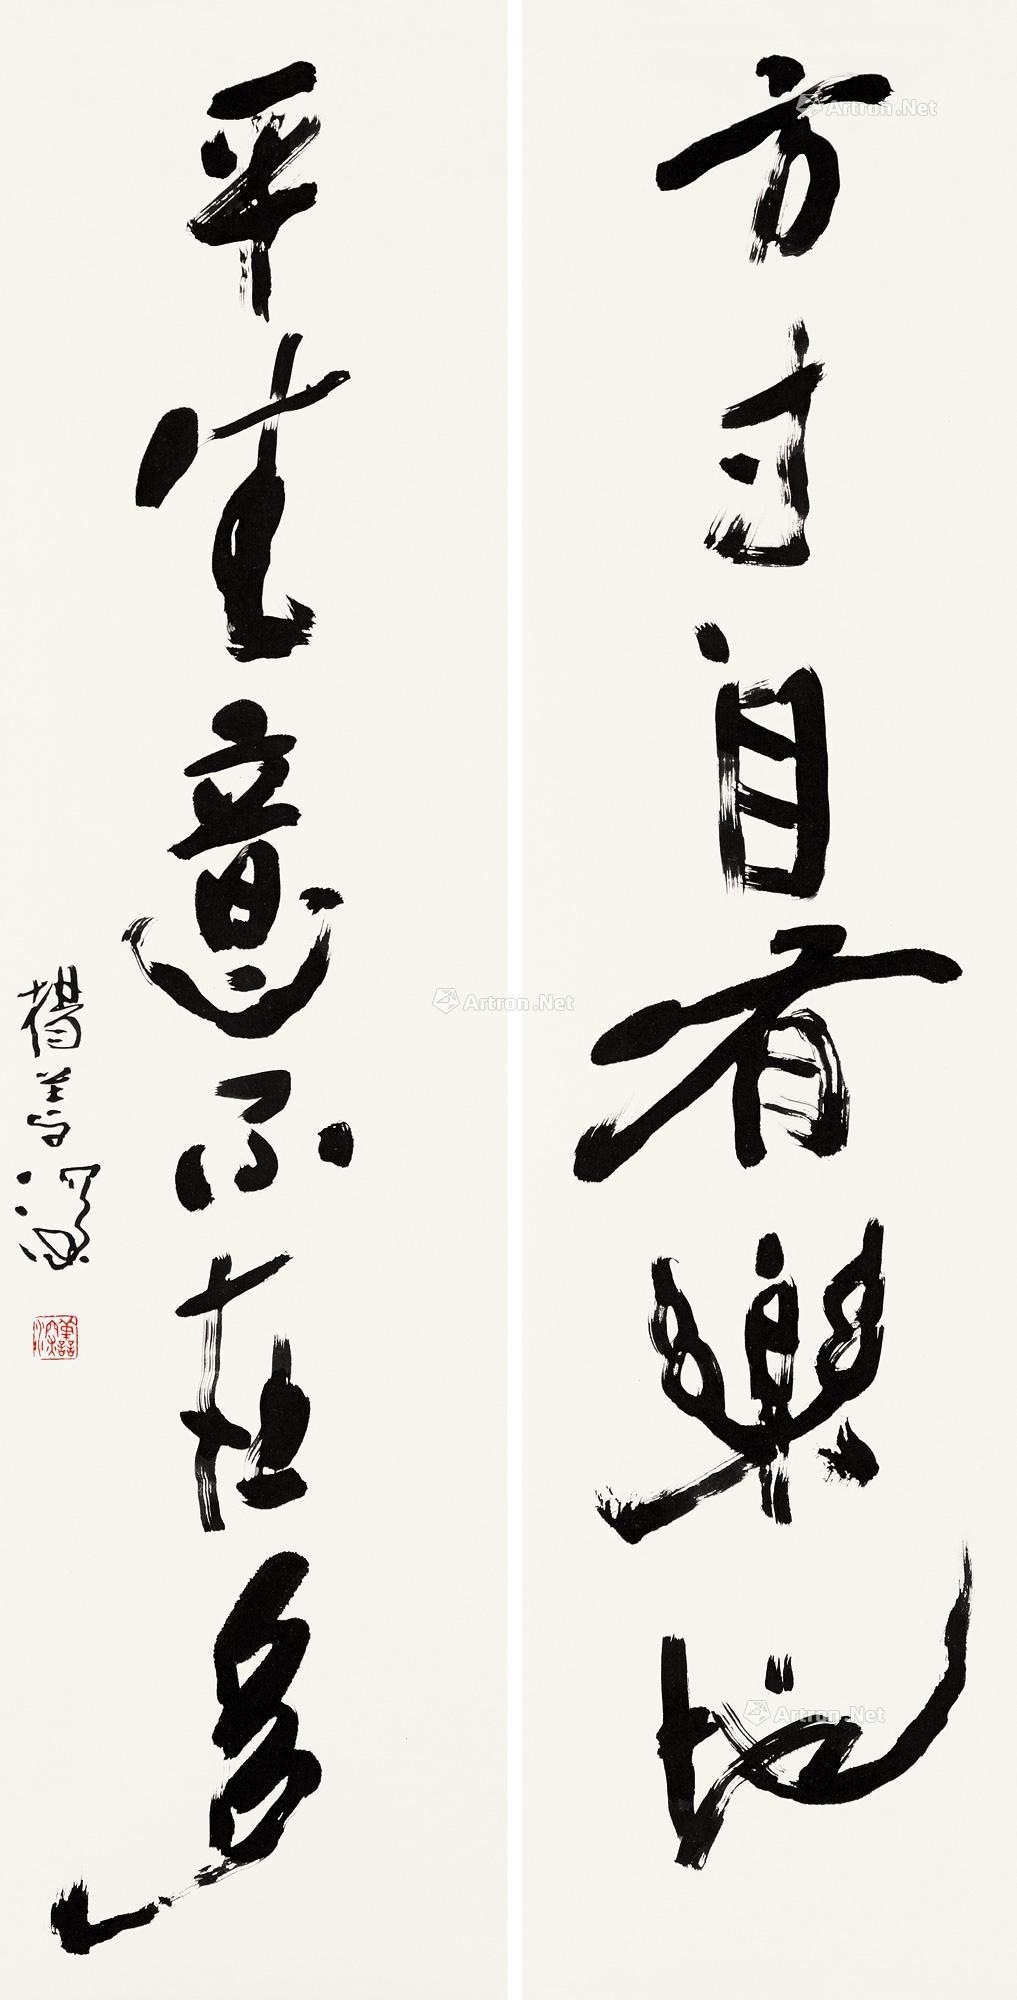 方寸自有樂地
平生意不在多
楊善深
善深
Artron.Net
Artron.Net
Artron.Net